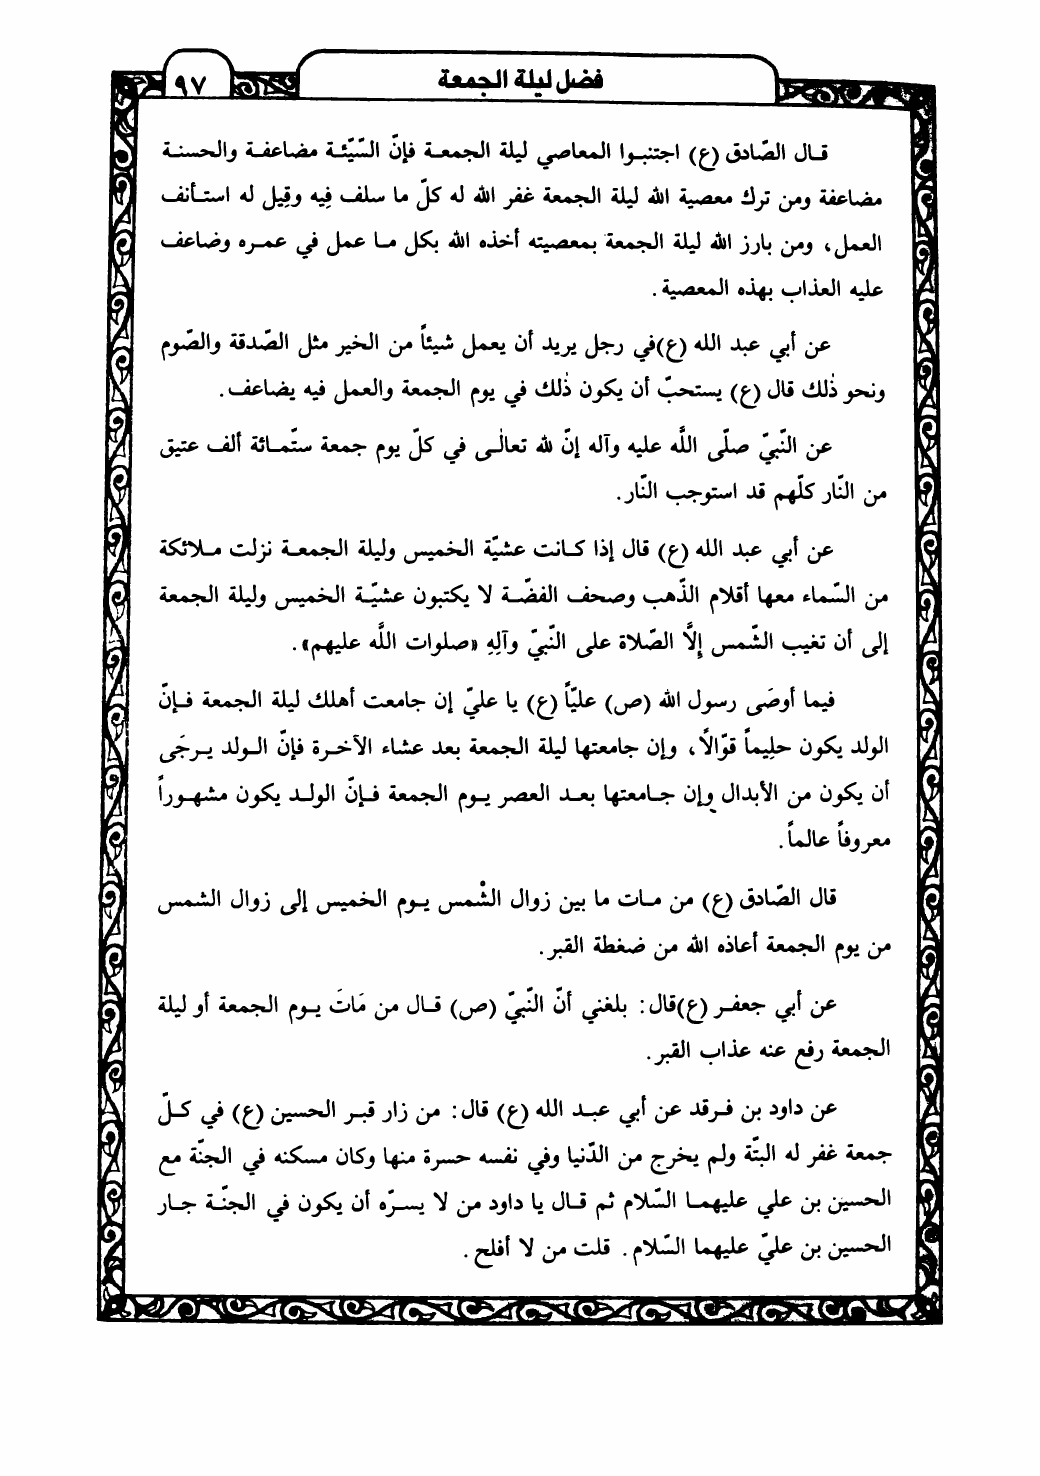 فضل ليلة الجمعة
٩٧
قال الصّادق (ع) اجتنبوا المعاصي ليلة الجمعة فإنّ السّيّئة مضاعفة والحسنة
مضاعفة ومن ترك معصية الله ليلة الجمعة غفر الله له كلّ ما سلف فِيه وقِيل له استأنف
العمل، ومن بارز الله ليلة الجمعة بمعصيته أخذه الله بكل ما عمل في عمره وضاعف
عليه العذاب بهذه المعصية.
عن أبي عبد الله (ع)في رجل يريد أن يعمل شيئاً من الخير مثل الصّدقة والصّوم
ونحو ذٰلك قال (ع) يستحبّ أن يكون ذٰلك في يوم الجمعة والعمل فيه يضاعف.
عن النّبيّ صلّى اللَّه عليه وآله إنّ لله تعالٰى في كلّ يوم جمعة ستّمائة ألف عتيق
من النّار كلّهم قد استوجب النّار.
عن أبي عبد الله (ع) قال إذا كانت عشيّة الخميس وليلة الجمعة نزلت ملائكة
من السّماء معها أقلام الذّهب وصحف الفضّة لا يكتبون عشيّة الخميس وليلة الجمعة
إلى أن تغيب الشّمس إلَّا الصّلاة على النّبيّ وآلِهِ «صلوات اللَّه عليهم».
فيما أوصَى رسول الله (ص) عليّاً (ع) يا عليّ إن جامعت أهلك ليلة الجمعة فإنّ
الولد يكون حلِيماً قوّالاً، وإن جامعتها ليلة الجمعة بعد عشاء الآخرة فإنّ الولد يرجَى
أن يكون من الأبدال وإن جامعتها بعد العصر يوم الجمعة فإنّ الولد يكون مشهوراً
معروفاً عالماً.
قال الصّادق (ع) من مات ما بين زوال الشْمس يوم الخميس إلى زوال الشمس
من يوم الجمعة أعاذه الله من ضغطة القبر.
عن أبي جعفر (ع)قال: بلغني أنّ النّبيّ (ص) قال من مَاتَ يوم الجمعة أو ليلة
الجمعة رفع عنه عذاب القبر.
عن داود بن فرقد عن أبي عبد الله (ع) قال: من زار قبر الحسين (ع) في كلّ
جمعة غفر له البتّة ولم يخرج من الدّنيا وفي نفسه حسرة منها وكان مسكنه في الجنّة مع
الحسين بن علي عليهما السّلام ثم قال يا داود من لا يسرّه أن يكون في الجنّة جار
الحسين بن عليّ عليهما السّلام. قلت من لا أفلح.